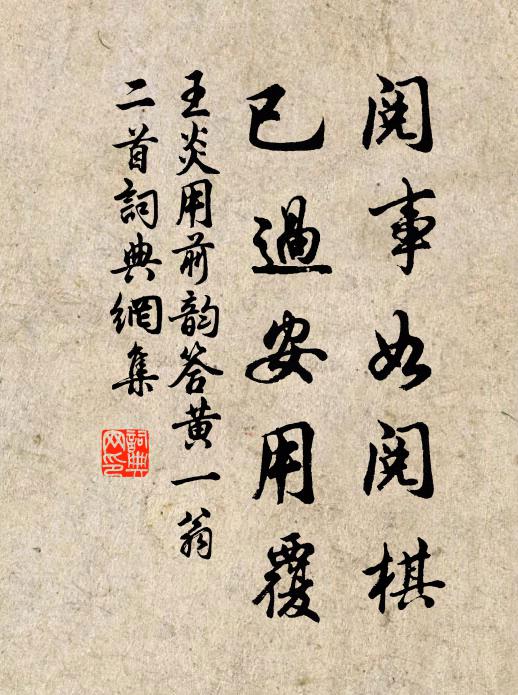 阅事如阅棋
已過安用覆
王炎用前韵答黄一翁
二首詞典網集
詞典網印